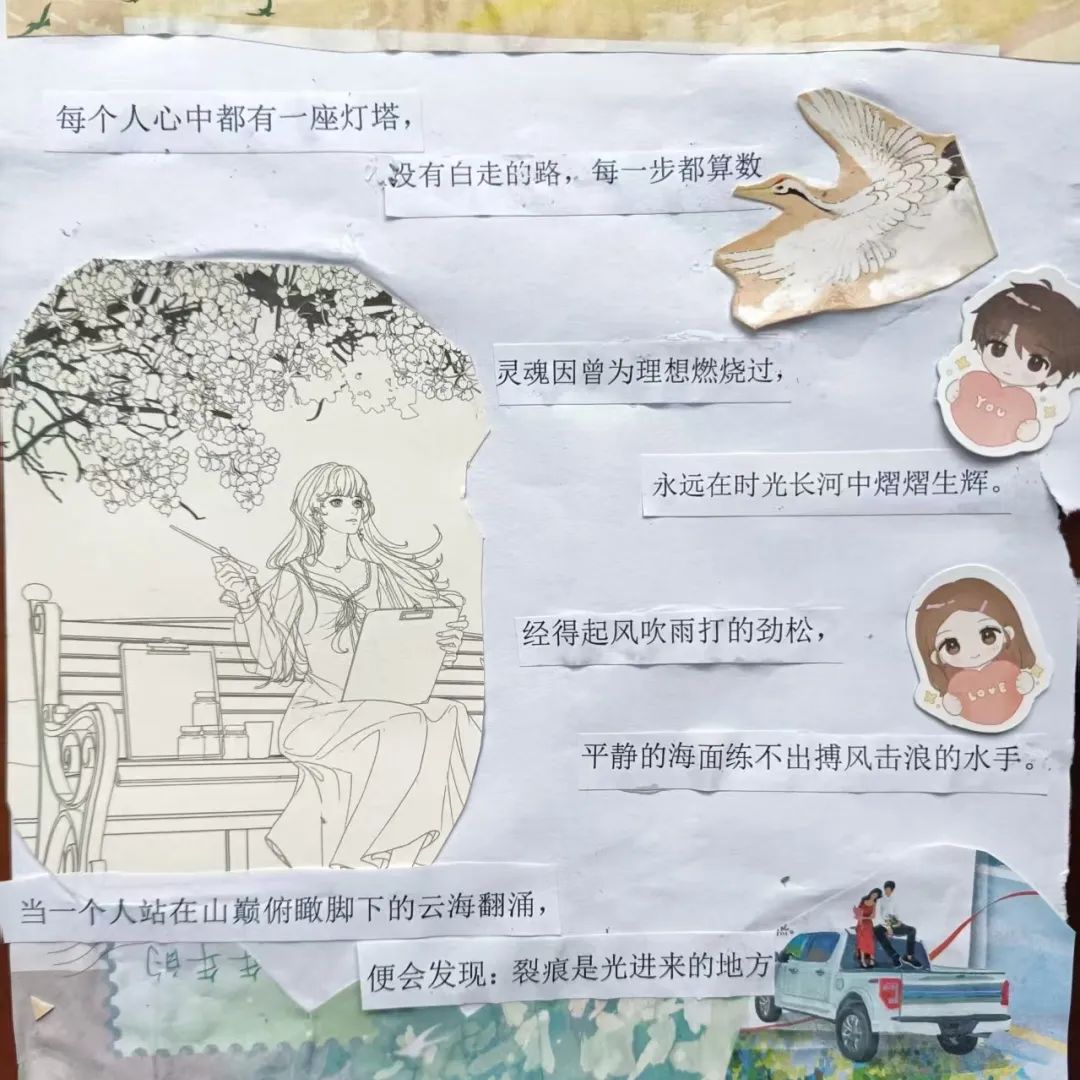 每个人心中都有一座灯塔，
没有白走的路，每一步都算数
灵魂因曾为理想燃烧过，
YOU
永远在时光长河中熠熠生辉。
经得起风吹雨打的劲松，
LOVE
平静的海面练不出搏风击浪的水手。
当一个人站在山巅俯瞰脚下的云海翻涌，
便会发现：裂痕是光进来的地方